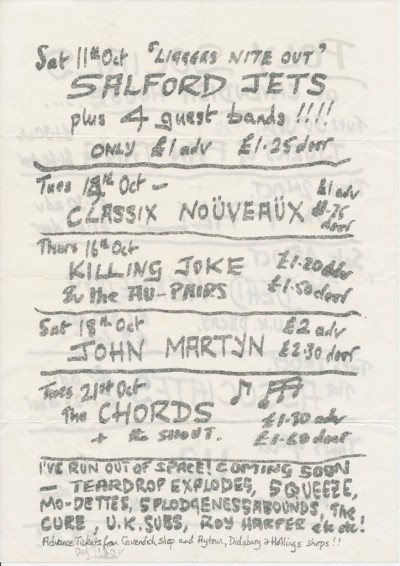 Sat 11th Oct "LIGGERS NITE OUT"
SALFORD JETS
plus 4 guest bands !!!!
ONLY £1 adv £1.25 door
Tues Oct — £1 adv
CLASSIX NOÜVEAÜX door
Thurs 16th Oct
KILLING JOKE £1.20 adv
& the AU-PAIRS £1.50 door
Sat 18th Oct £2 adv
JOHN MARTYN £2.30 door
Tues 21st Oct
The CHORDS £1.30 adv
+ the SHOUT. £1.60 door
I'VE RUN OUT OF SPACE! COMING SOON
— TEARDROP EXPLODES, SQUEEZE,
MO-DETTES, SPLODGENESSABOUNDS, The
CURE, U.K. SUBS, ROY HARPER etc etc!
Advance Tickets from Cavendish Shop and Aytoun, Didsbury & Hollings shops!!